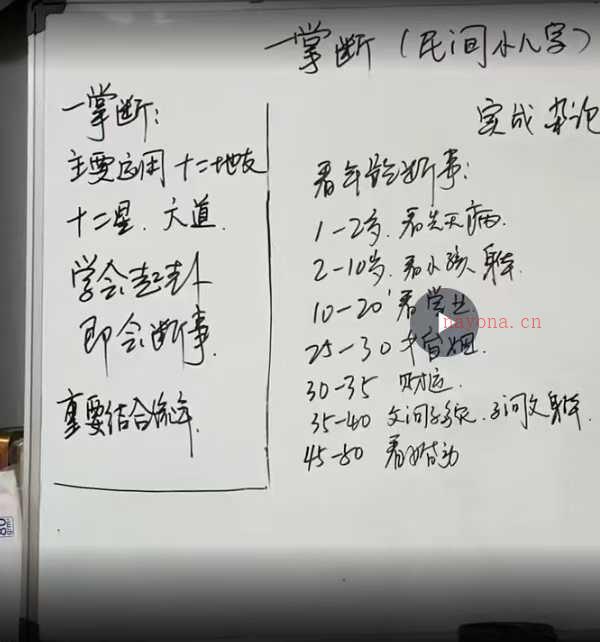 一掌断（民间小八字）
一掌断：
主要运用十二地支
十二星、六道.
学会起卦
即会断事.
重要结合流年.
实战杂论
看年龄断事：
1-2岁.看先天病.
2-10岁.看小孩身体.
10-20 看学业
25-30 才官姻.
30-35 财运.
35-40 父问子女.子问父身体.
45-80 看
nayona.cn
80